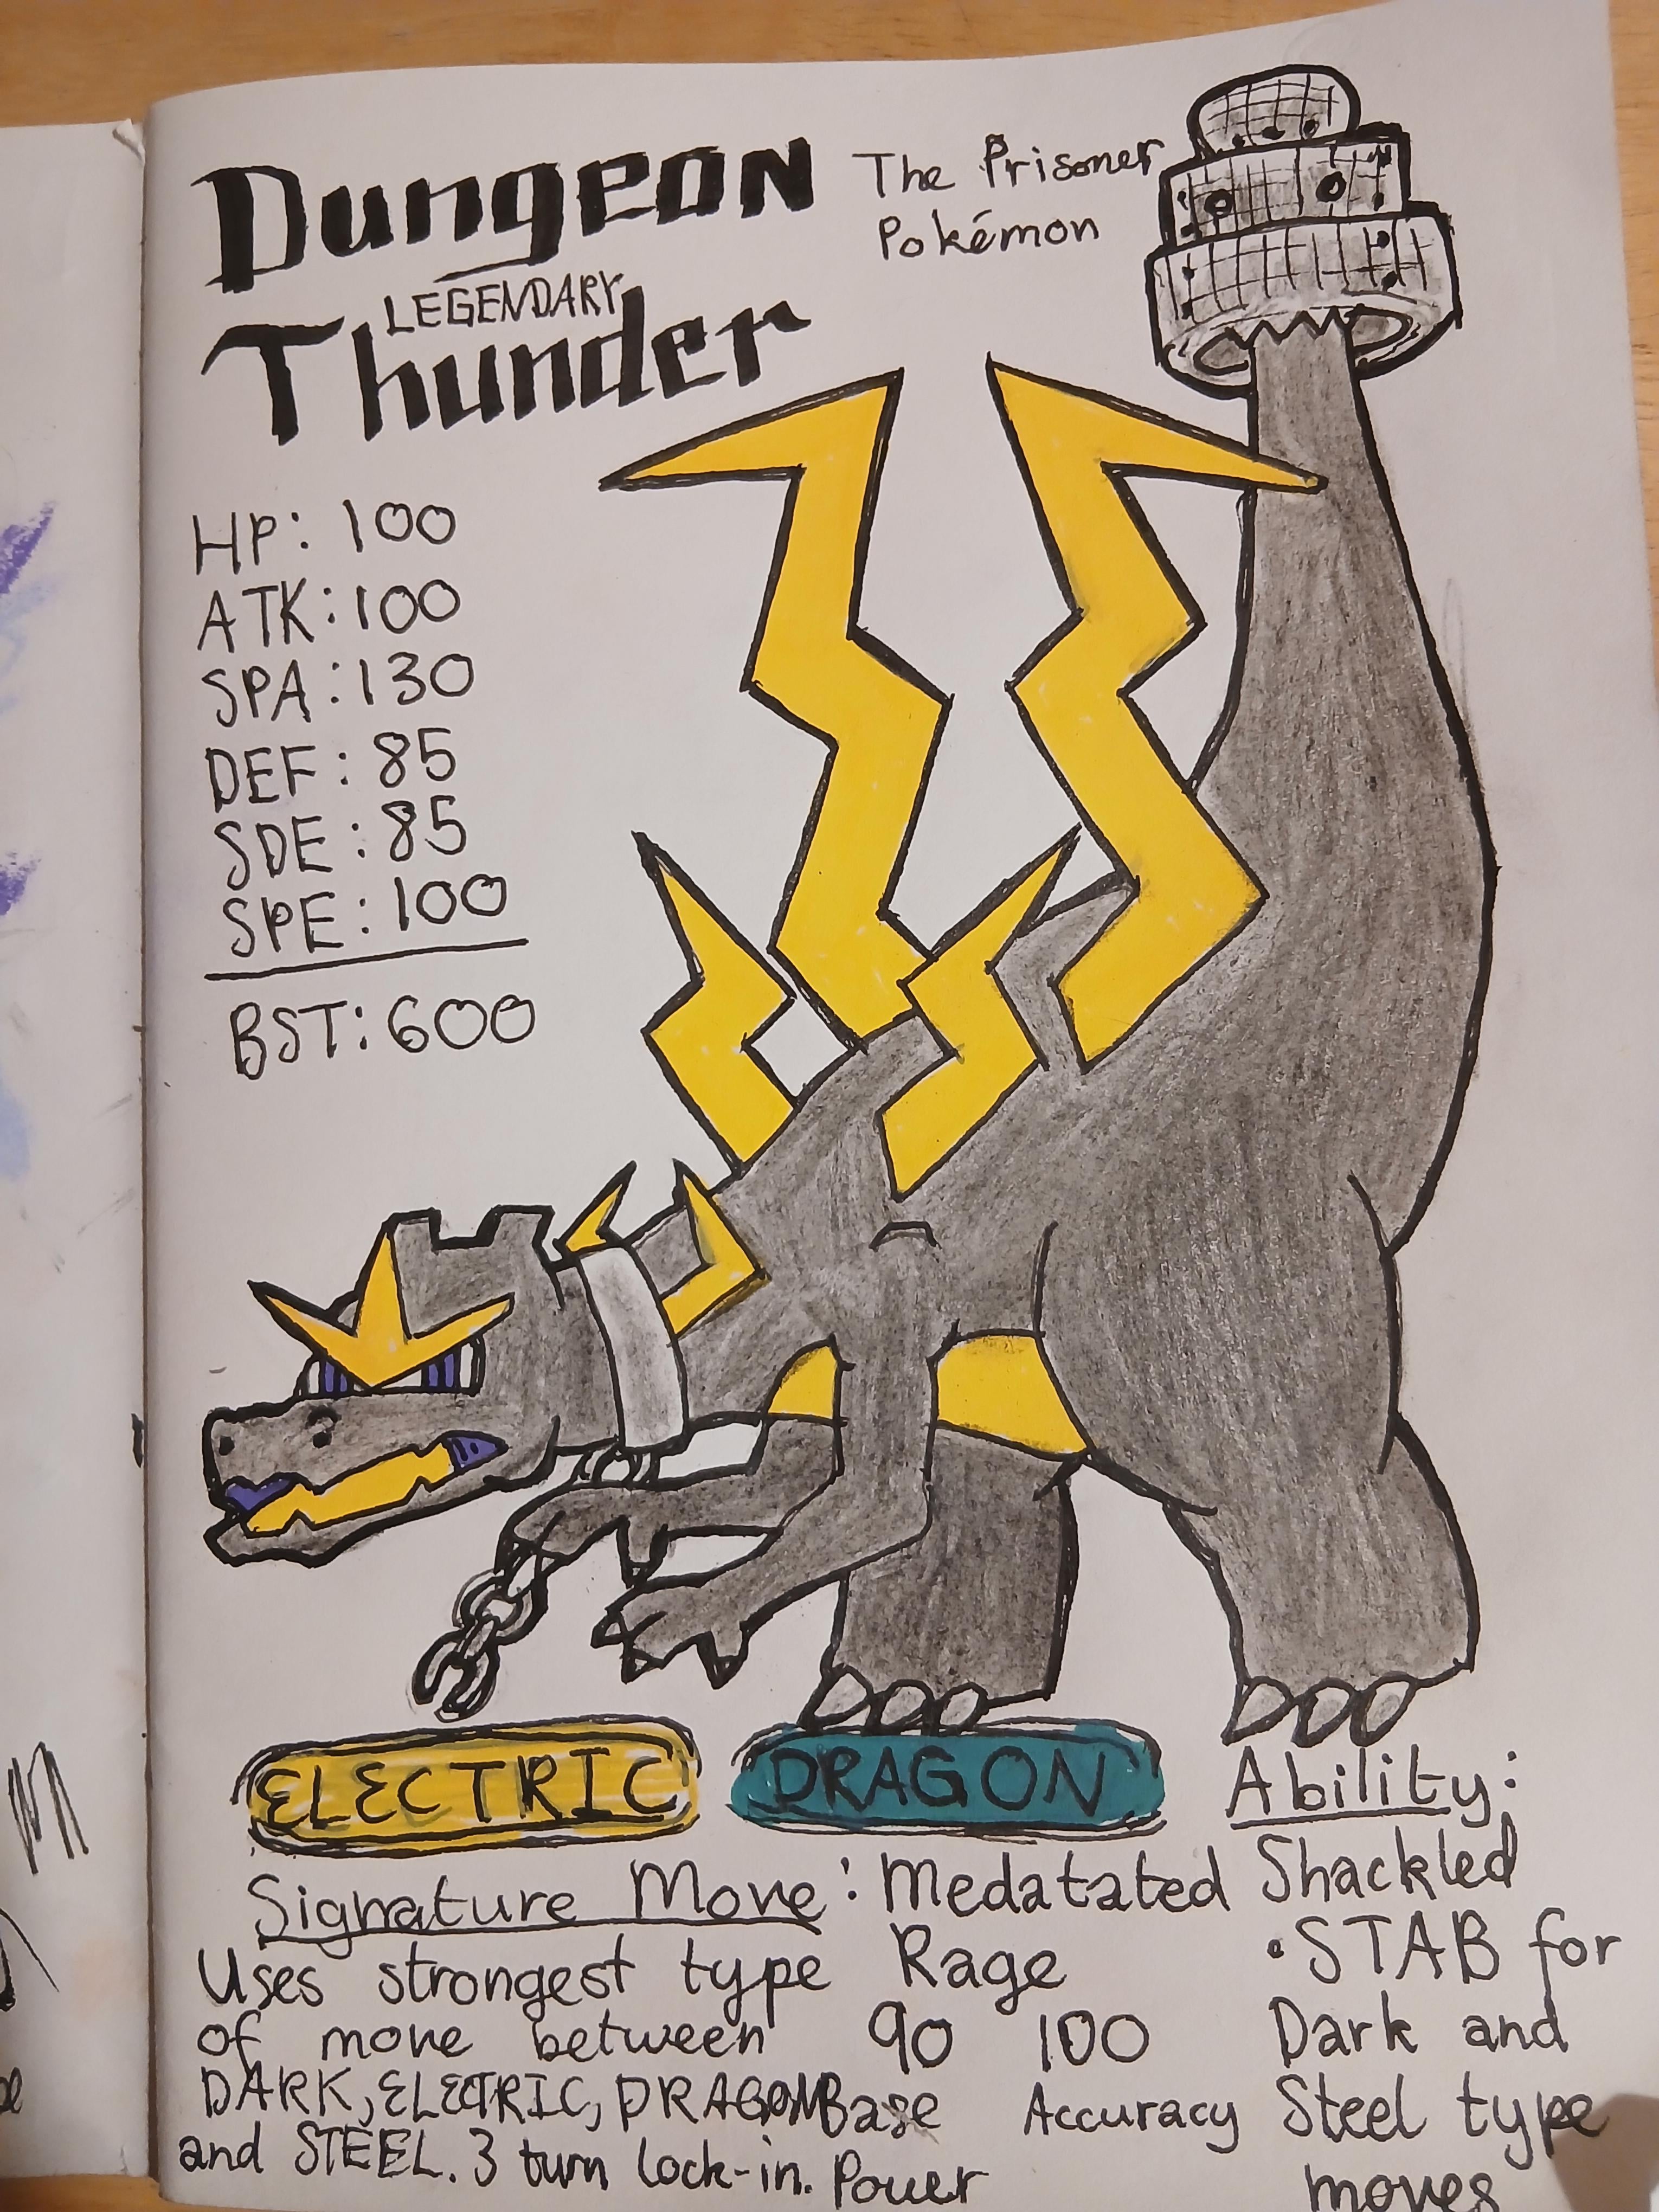 Dungeon
LEGENDARY
Thunder
The Prisoner
Pokémon
HP: 100
ATK: 100
SPA: 130
DEF: 85
SDE: 85
SPE: 100
BST: 600
ELECTRIC
DRAGON
Signature Move: Medatated
Rage
90 100
Base Accuracy
Power
Uses strongest type
of move between
DARK, ELECTRIC, DRAGON
and STEEL. 3 turn lock-in.
Ability:
Shackled
•STAB for
Dark and
Steel type
moves
M